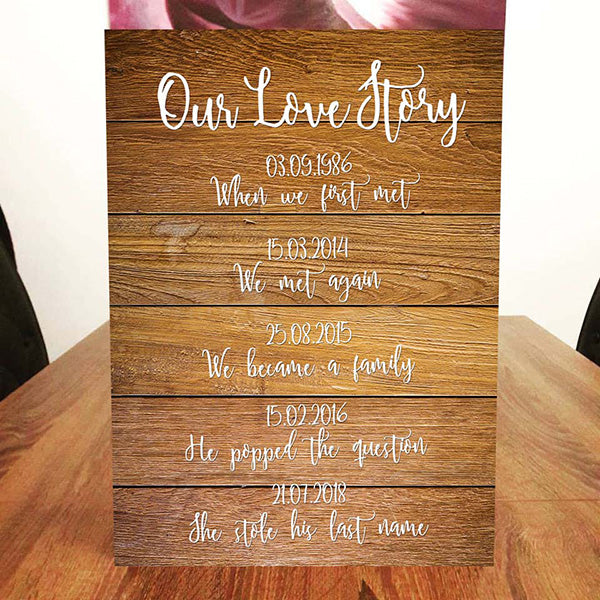 Our Love Story
03.09.1986
When we first met
15.03.2014
We met again
25.08.2015
We became a family
15.02.2016
He popped the question
21.07.2018
She stole his last name